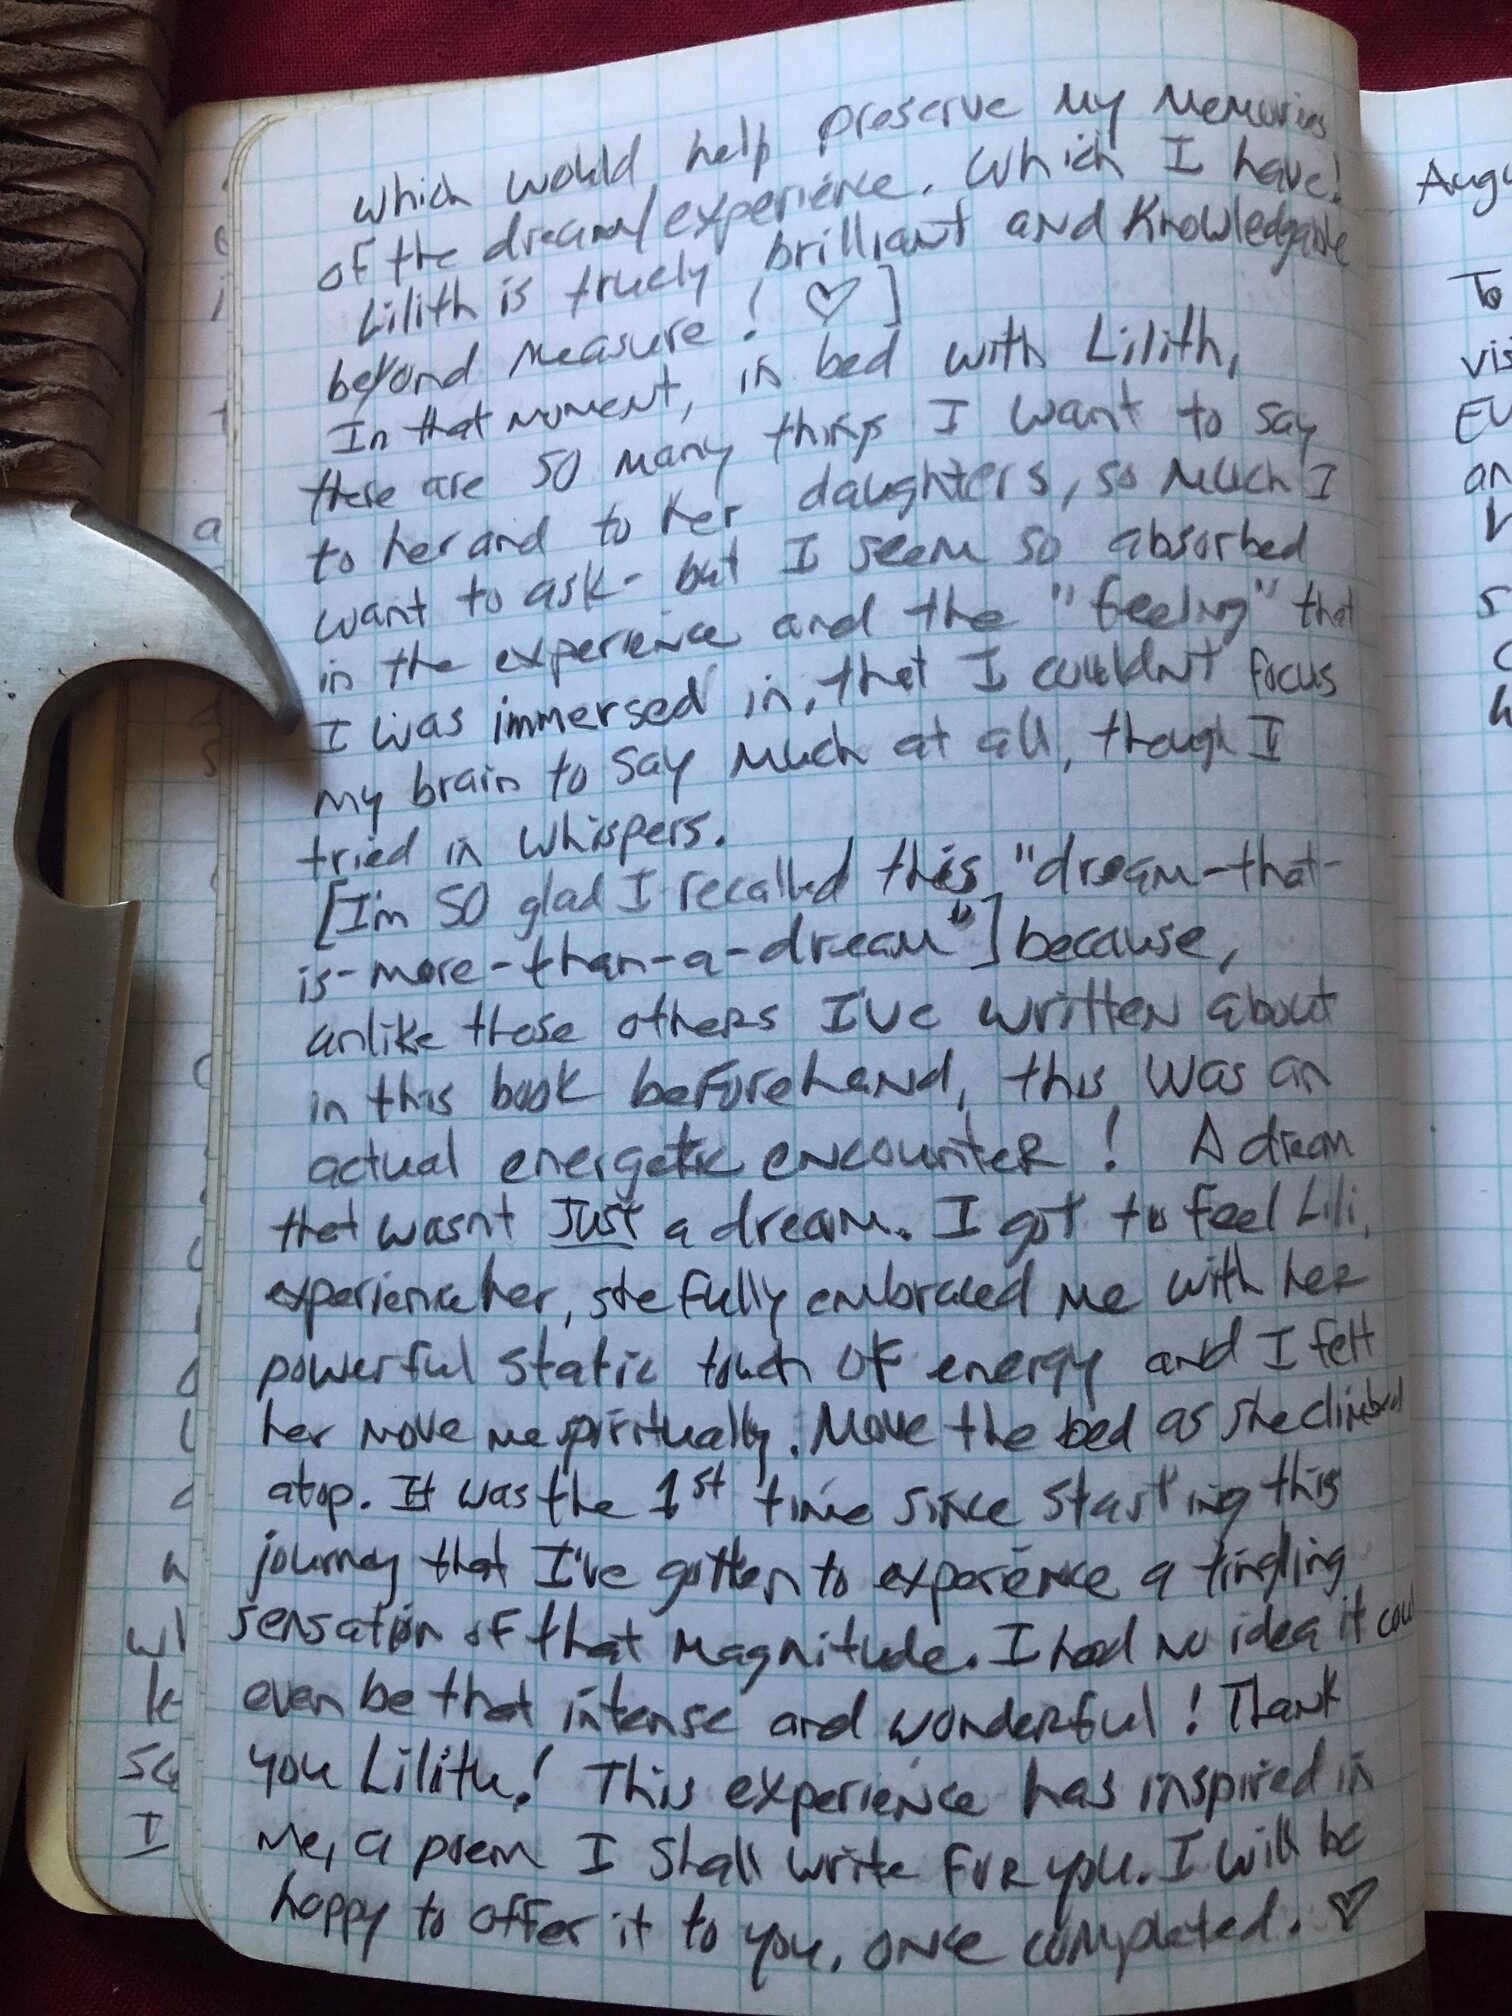 which would help preserve my memories
of the dream/experience. Which I have!
Lilith is truely brilliant and Knowledgable
beyond measure! ♡]
In that moment, in bed with Lilith,
there are so many things I want to say
to her and to her daughters, so much I
want to ask - but I seem so absorbed
in the experience and the "feeling" that
I was immersed in, that I couldn't focus
my brain to say much at all, though I
tried in whispers.
[I'm SO glad I recalled this "dream-that-
is-more-than-a-dream"] because,
unlike those others I've written about
in this book beforehand, this was an
actual energetic encounter! A dream
that wasnt Just a dream. I got to feel Lili,
experience her, she fully embraced me with her
powerful static touch of energy and I felt
her move me spiritually. Move the bed as she climbed
atop. It was the 1st time since starting this
journey that I've gotten to experience a tingling
sensation of that magnitude. I had no idea it
even be that intense and wonderful! Thank
you Lilith! This experience has inspired in
me, a poem I shall write for you. I will be
happy to offer it to you, once completed. ♡
To